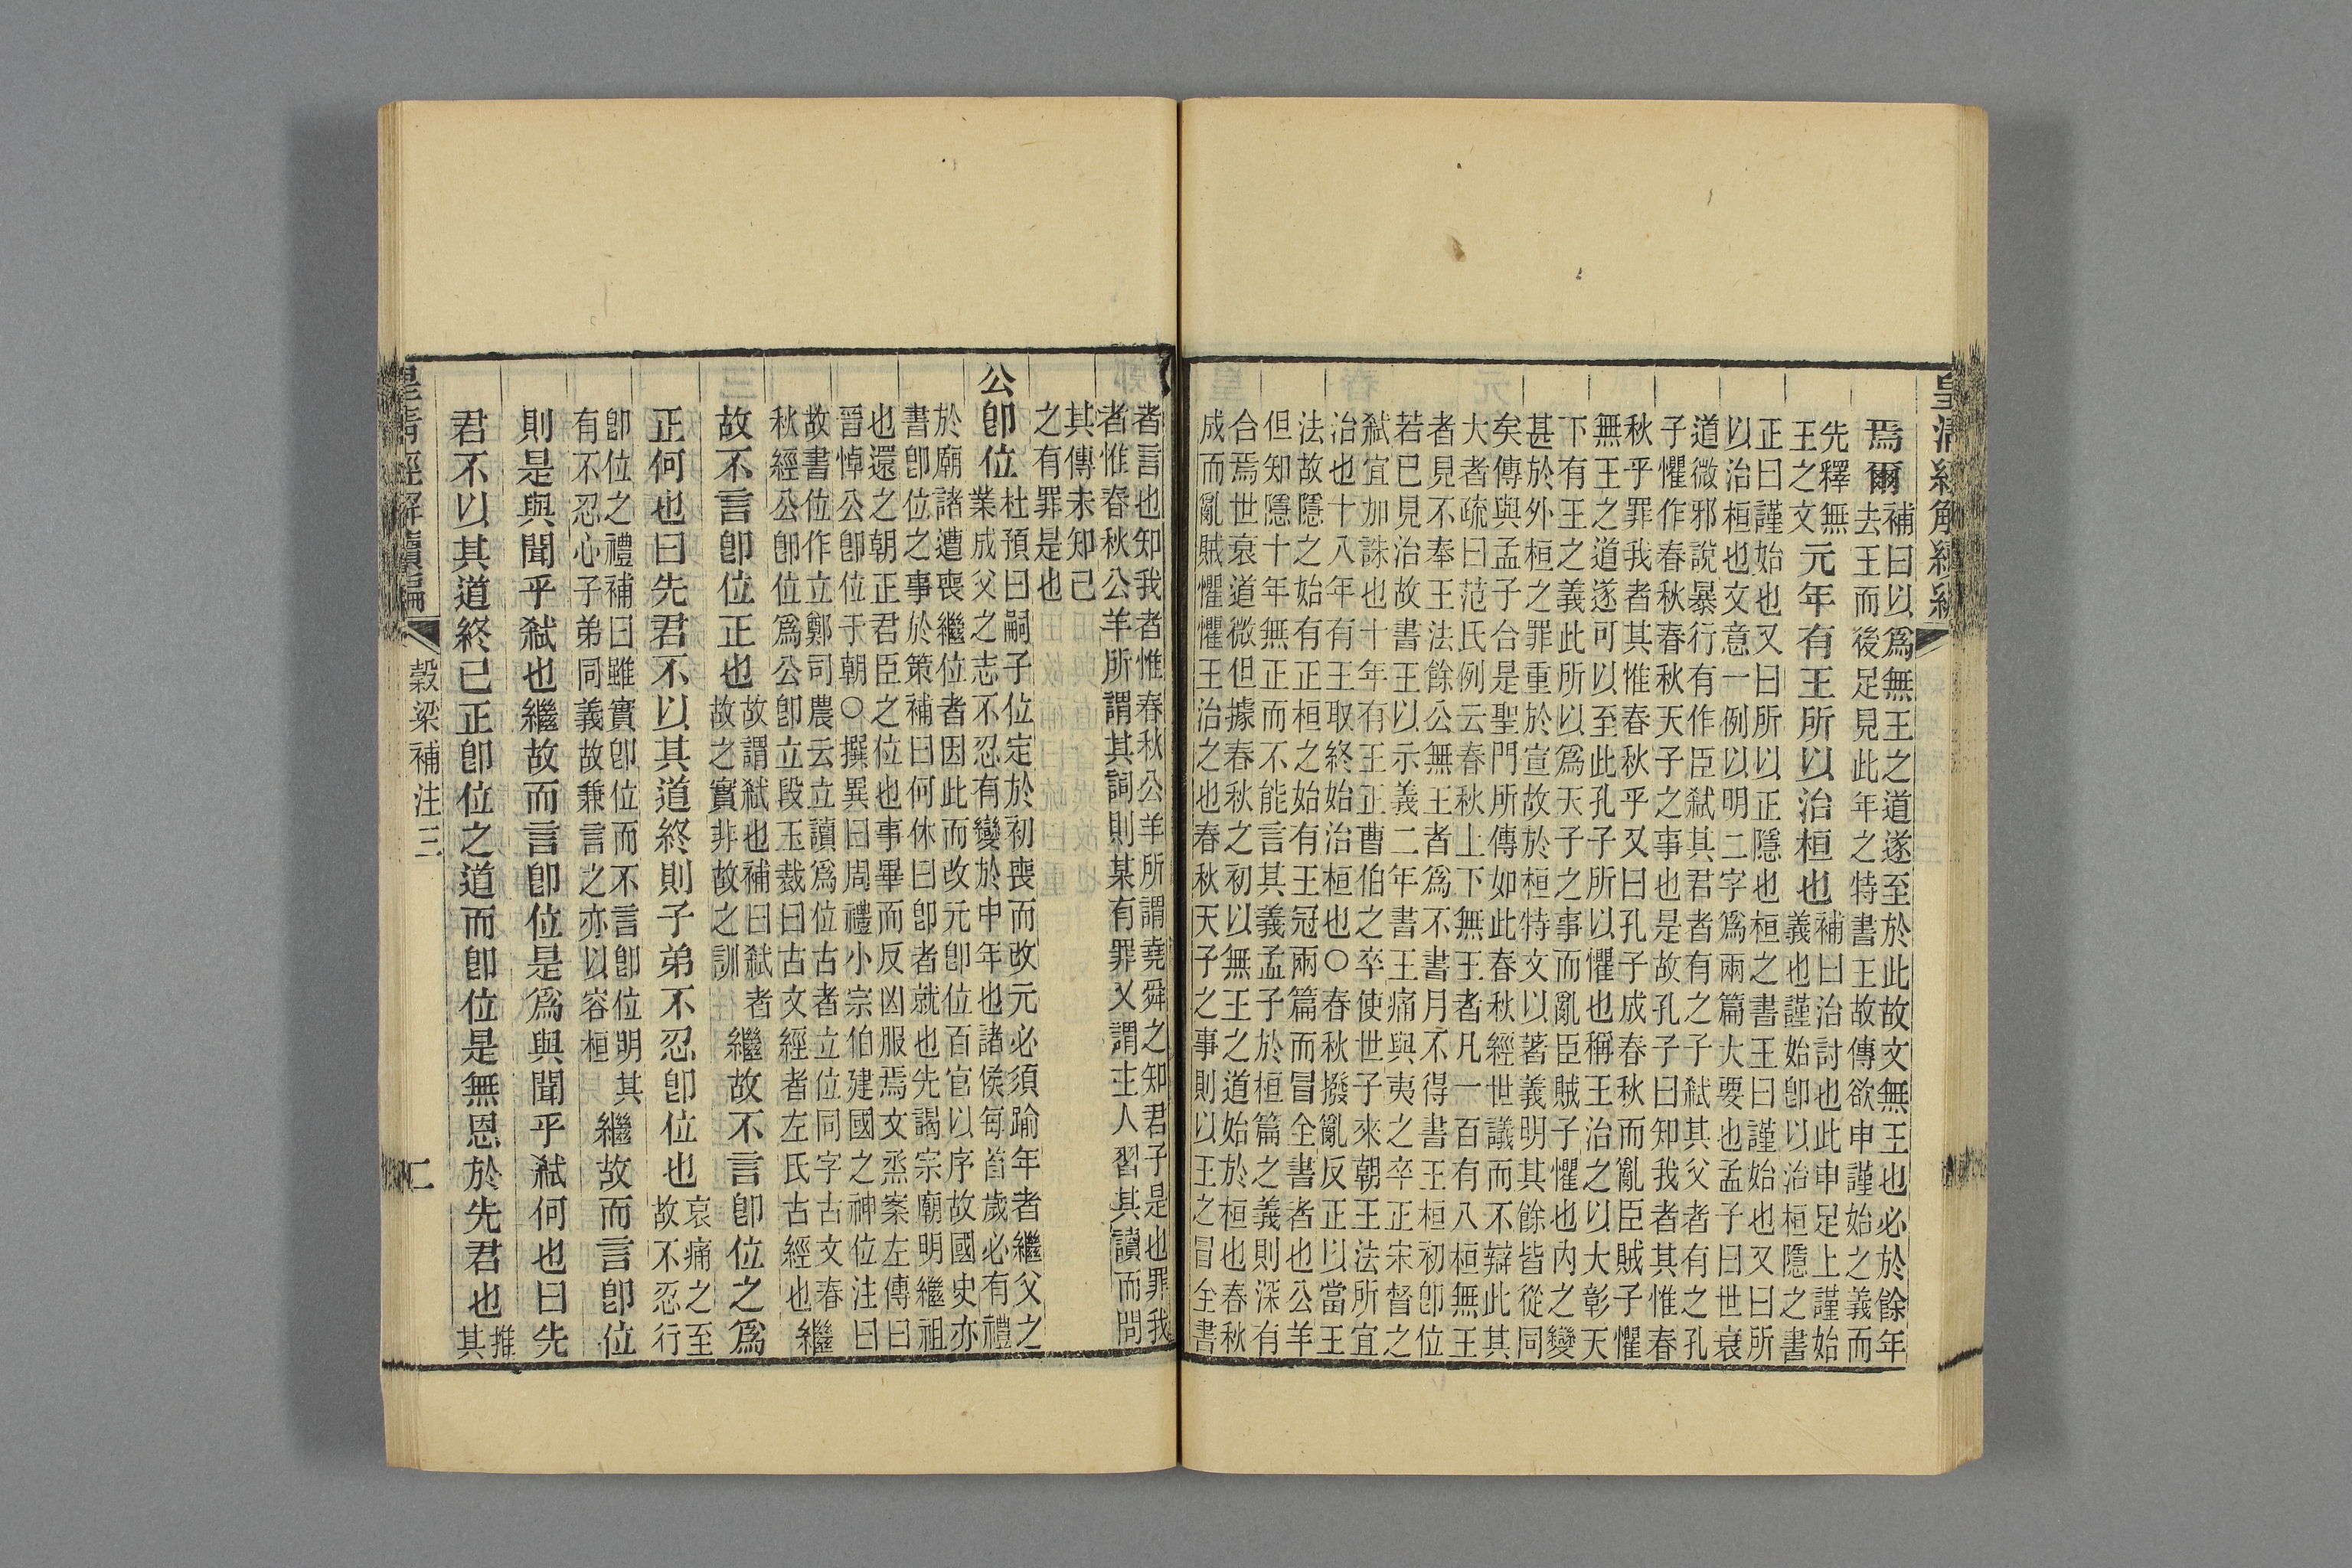 皇清經解續編
焉爾
補曰以爲無王之道遂至於此故文無王也必於餘年
去王而後足見此年之特書王故傳欲申謹始之義而
先釋無
王之文
元年有王所以治桓也
補曰治討也此申足上謹始
義也謹始卽以治桓隱之書
正曰謹始也又曰所以正隱也桓之書王曰謹始也又曰所
以治桓也文意一例以明二字爲兩篇大要也孟子曰世衰
道微邪說暴行有作臣弑其君者有之子弑其父者有之孔
子懼作春秋春秋天子之事也是故孔子曰知我者其惟春
秋乎罪我者其惟春秋乎又曰孔子成春秋而亂臣賊子懼
無王之道遂可以至此孔子所以懼也稱王治之以大彰天
下有王之義此所以爲天子之事而亂臣賊子懼也內之變
甚於外桓之罪重於宣故於桓特文以著義明其餘皆從同
矣傳與孟子合是聖門所傳如此春秋經世議而不辯此其
大者疏曰范氏例云春秋上下無王者凡一百有八桓無王
者見不奉王法餘公無王者爲不書月不得書王桓初卽位
若已見治故書王以示義二年書王痛與夷之卒正宋督之
弑宜加誅也十年有王正曹伯之卒使世子來朝王法所宜
治也十八年有王取終始治桓也○春秋撥亂反正以當王
法故隱之始有正桓之始有王冠兩篇而冒全書者也公羊
但知隱十年無正而不能言其義孟子於桓篇之義則深有
合焉世衰道微但據春秋之初以無王之道始於桓也春秋
成而亂賊懼懼王治之也春秋天子之事則以王之冒全書
者言也知我者惟春秋公羊所謂堯舜之知君子是也罪我
者惟春秋公羊所謂其詞則某有罪又謂主人習其讀而問
其傳未知己
之有罪是也
公卽位
杜預曰嗣子位定於初喪而改元必須踰年者繼父之
業成父之志不忍有變於中年也諸侯每首歲必有禮
於廟諸遭喪繼位者因此而改元卽位百官以序故國史亦
書卽位之事於策補曰何休曰卽者就也先謁宗廟明繼祖
也還之朝正君臣之位也事畢而反凶服焉文烝案左傳曰
晉悼公卽位于朝○撰異曰周禮小宗伯建國之神位注曰
故書位作立鄭司農云立讀爲位古者立位同字古文春
秋經公卽位爲公卽立段玉裁曰古文經者左氏古經也
繼
故不言卽位正也
故謂弑也補曰弑者
故之實非故之訓
繼故不言卽位之爲
正何也曰先君不以其道終則子弟不忍卽位也
哀痛之至
故不忍行
卽位之禮補曰雖實卽位而不言卽位明其
有不忍心子弟同義故兼言之亦以容桓
繼故而言卽位
則是與聞乎弑也繼故而言卽位是爲與聞乎弑何也曰先
君不以其道終已正卽位之道而卽位是無恩於先君也
推
其
皇清經解續編
穀梁補注三
二